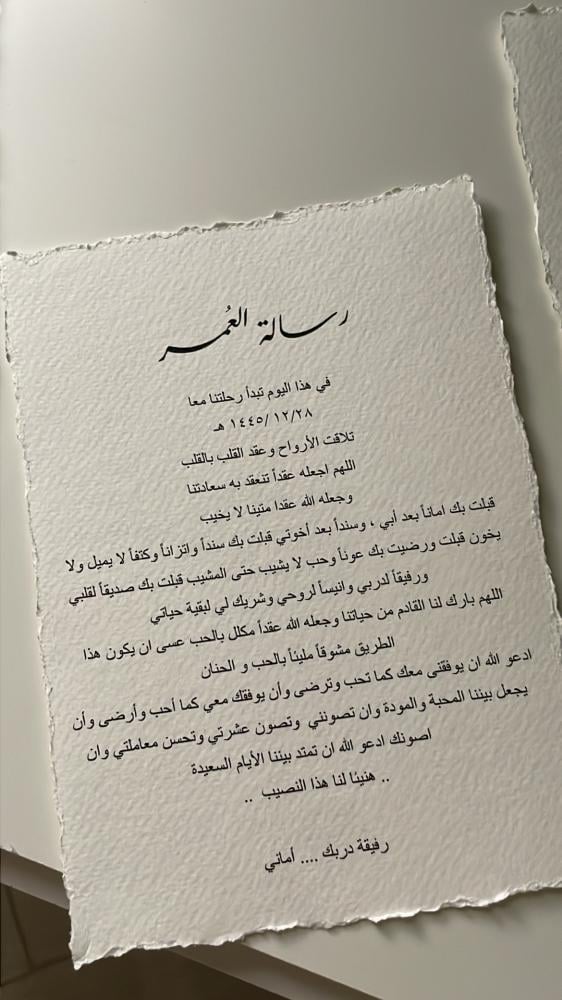 رسالة العُمر
في هذا اليوم تبدأ رحلتنا معا
١٤٤٥/١٢/٢٨ هـ
تلاقت الأرواح وعقد القلب بالقلب
اللهم اجعله عقداً تنعقد به سعادتنا
وجعله الله عقدا متينا لا يخيب
قبلت بك اماناً بعد أبي ، وسنداً بعد أخوتي قبلت بك سنداً واتزاناً وكتفاً لا يميل ولا
يخون قبلت ورضيت بك عوناً وحب لا يشيب حتى المشيب قبلت بك صديقاً لقلبي
ورفيقاً لدربي وانيساً لروحي وشريك لي لبقية حياتي
اللهم بارك لنا القادم من حياتنا وجعله الله عقداً مكلل بالحب عسى ان يكون هذا
الطريق مشوقاً مليئاً بالحب و الحنان
ادعو الله ان يوفقنى معك كما تحب وترضى وأن يوفقك معي كما أحب وأرضى وأن
يجعل بيننا المحبة والمودة وان تصونني وتصون عشرتي وتحسن معاملتي وان
اصونك ادعو الله ان تمتد بيننا الأيام السعيدة
.. هنيئا لنا هذا النصيب ..
رفيقة دربك .... أماني